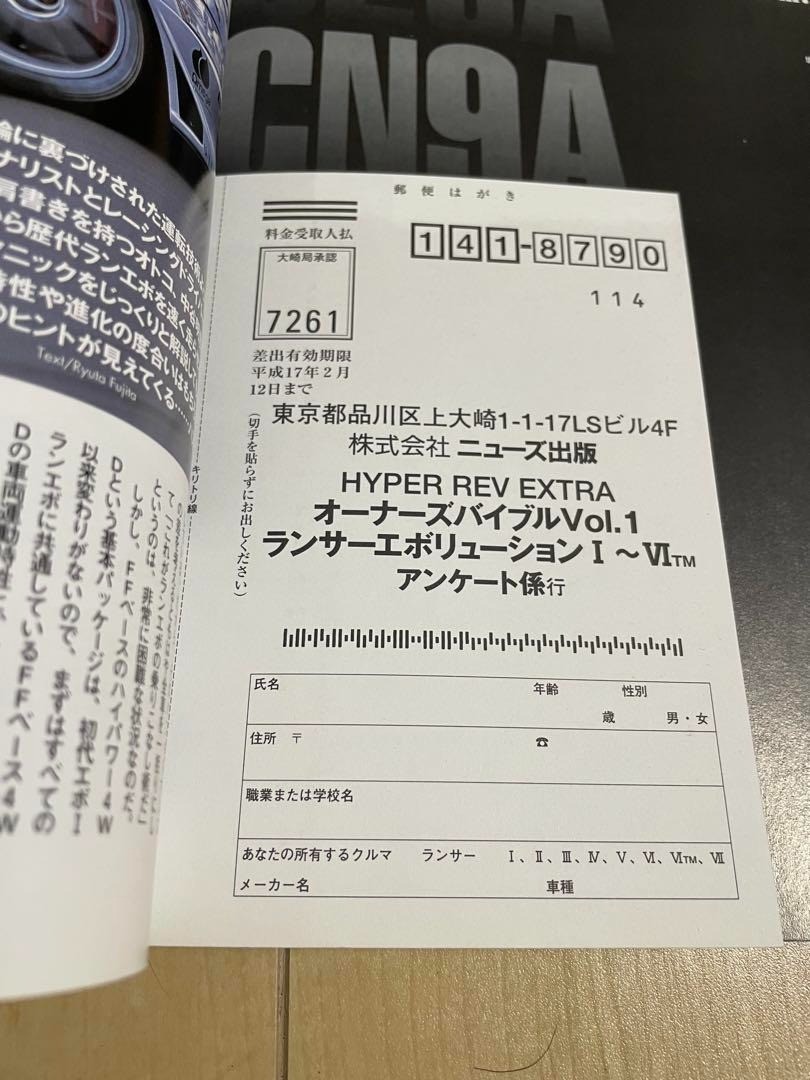 CN9A
郵便はがき
料金受取人払
大崎局承認
7261
差出有効期限
平成17年2月
12日まで
(切手を貼らずにお出しください)
141-8790
114
東京都品川区上大崎1-1-17LSビル4F
株式会社 ニューズ出版
HYPER REV EXTRA
オーナーズバイブルVol.1
ランサーエボリューションⅠ～ⅥTM
アンケート係行
氏名
年齢
性別
歳
男・女
住所 〒
☎
職業または学校名
あなたの所有するクルマ ランサー Ⅰ、Ⅱ、Ⅲ、Ⅳ、Ⅴ、Ⅵ、ⅥTM、Ⅶ
メーカー名
車種
キリトリ線
論に裏づけされた運転技術
ナリストとレーシングドライ
肩書きを持つオトコ、中
ら歴代ランエボを速く走ら
クニックをじっくりと解説し
特性や進化の度合いは
のヒントが見えてくる……
Text/Ryuta Fujita
というのは、非常に困難な状況なのだ。
しかし、FFベースのハイパワー4W
Dという基本パッケージは、初代エボⅠ
以来変わりがないので、まずはすべての
ランエボに共通しているFFベース4W
Dの車両運動特性